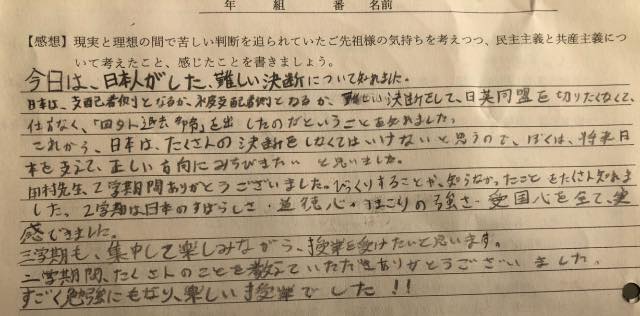 年　組　番　名前
【感想】現実と理想の間で苦しい判断を迫られていたご先祖様の気持ちを考えつつ、民主主義と共産主義につ
いて考えたこと、感じたことを書きましょう。
今日は、日本人がした、難しい決断について知れました。
日本は、支配者側となるか、被支配者側となるか、難しい決断をして、日英同盟を切りたくなくて、
仕方なく、「四タト退去命令」を出したのだということを知れました。
これから、日本は、たくさんの決断をしなくてはいけないと思うので、ぼくは、将来日
本を支えて、正しい方向にみちびきたいと思いました。
田村先生、2学期間ありがとうございました。びっくりすることや、知らなかったことをたくさん知れま
した。2学期は日本のすばらしさ・道徳心・ほこりの強さ・愛国心を全て、実
感できました。
三学期も、集中して楽しみながら、授業を受けたいと思います。
二学期間、たくさんのことを教えていただきありがとうございました。
すごく勉強にもなり、楽しい授業でした!!